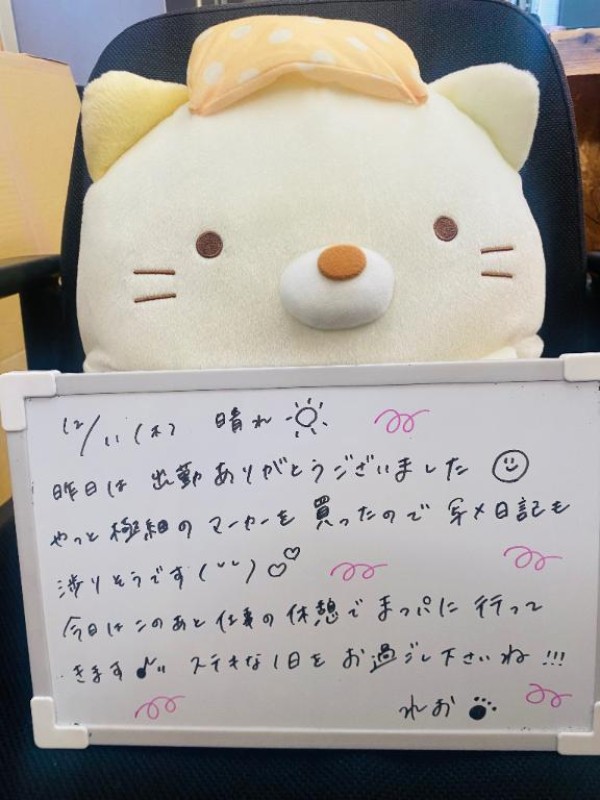 12/11(木) 晴れ
昨日は 出勤ありがとうございました
やっと極細のマーカーを買ったので写メ日記も
渉りそうです(˘˘)♡♡
今日はこのあと仕事の休憩でまっぱに行って
きます♪" ステキな1日をお過ごし下さいね!!!
れお